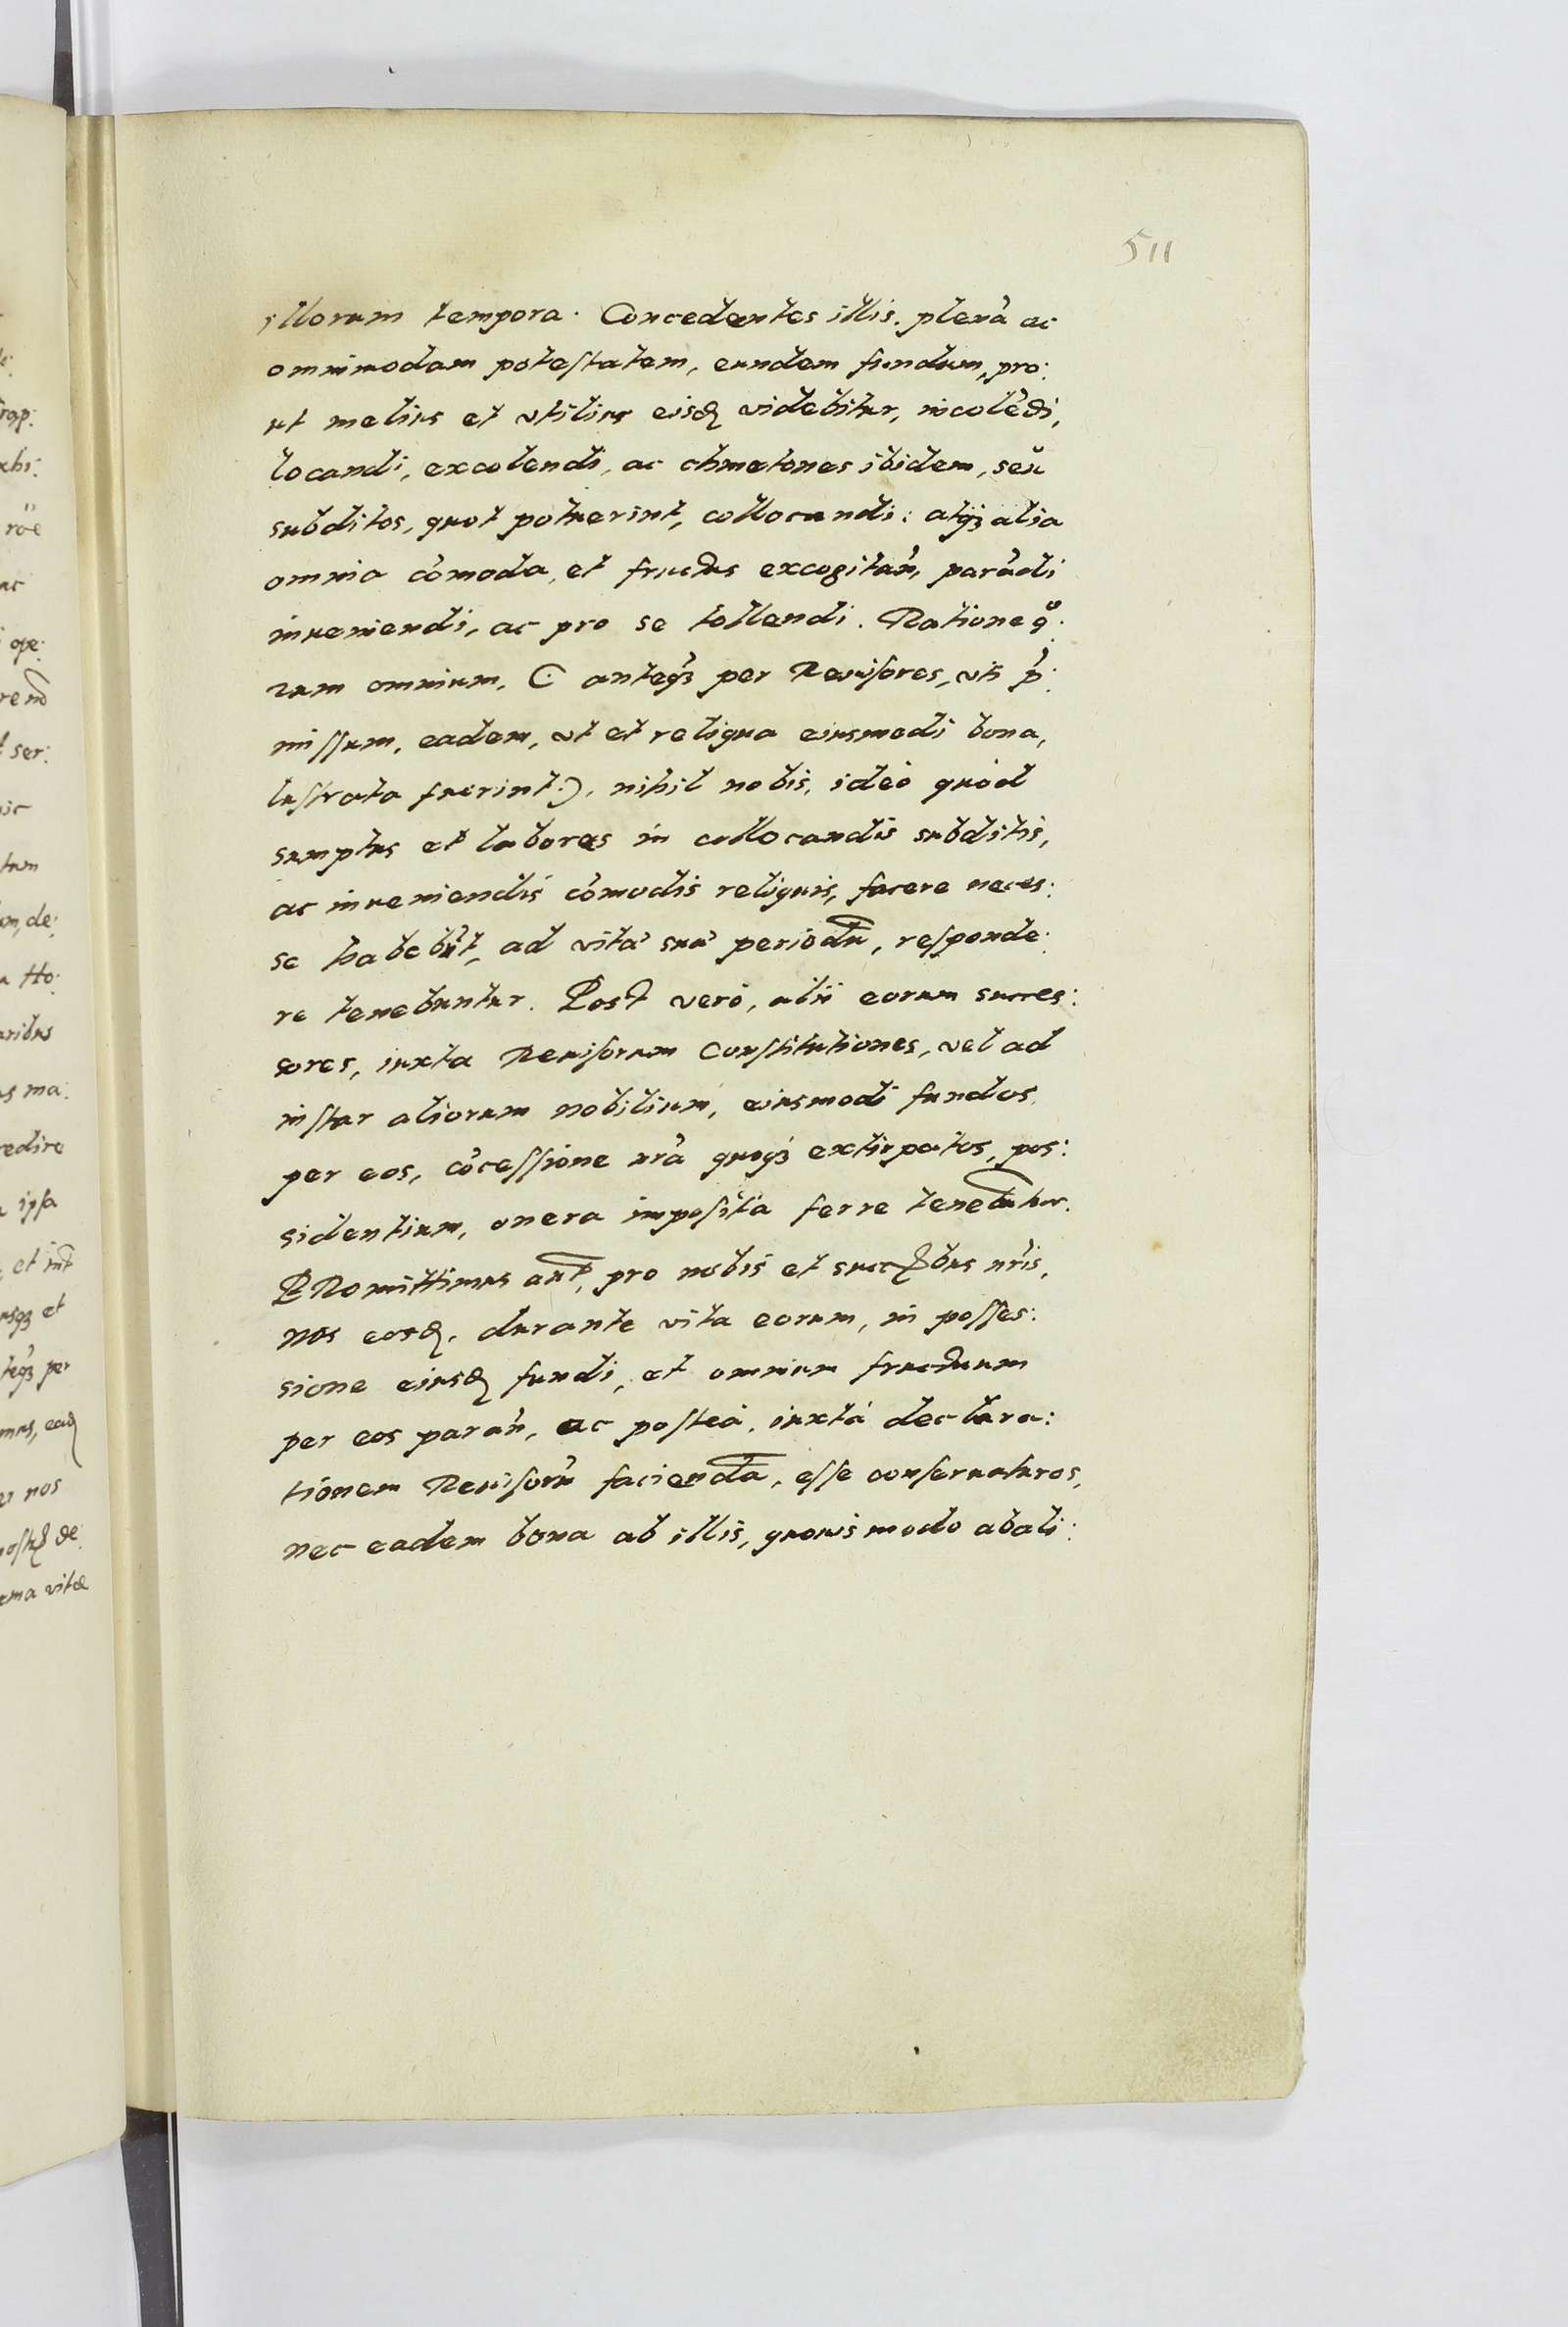 511
illorum tempora. Concedentes illis, plenã ac
omnimodam potestatem, eundem fundum, pro:
ut melius et utilius eisdẽ videbitur, incolẽdi,
locandi, excolendi, ac chmetones ibidem, seu
subditos, quot potuerint, collocandi: atq3 alia
omnia cõmoda, et fructus excogitañ, parãdi
inueniendi, ac pro se tollendi. Ratione quo:
rum omnium, (: anteq̃3 per Reuisores, uti p̃:
missum, eadem, ut et reliqua eiusmodi bona,
lustrata fuerint:), nihil nobis, ideò quòd
sumptus et labores in collocandis subditis,
ac inueniendis cõmodis reliquis, facere neces:
se habebũt, ad vitã suã periodũ, responde:
re tenebuntur. Post verò, alii eorum succes:
sores, iuxta Reuisorum Constitutiones, vel ad
instar aliorum nobilium, eiusmodi fundos
per eos, cõcessione nrã quoq3 extirpatos, pos:
sidentium, onera imposita ferre tenebuntur.
PRomittimus aut̃, pro nobis et succẽbus nr̃is,
nos eosdẽ, durante vita eorum, in posses:
sione eiusdẽ fundi, et omnium fructuum
per eos parañ, ac posteà, iuxtà declara:
tionem Reuisorũ faciendã, esse conseruaturos,
nec eadem bona ab illis, quouis modo abali: